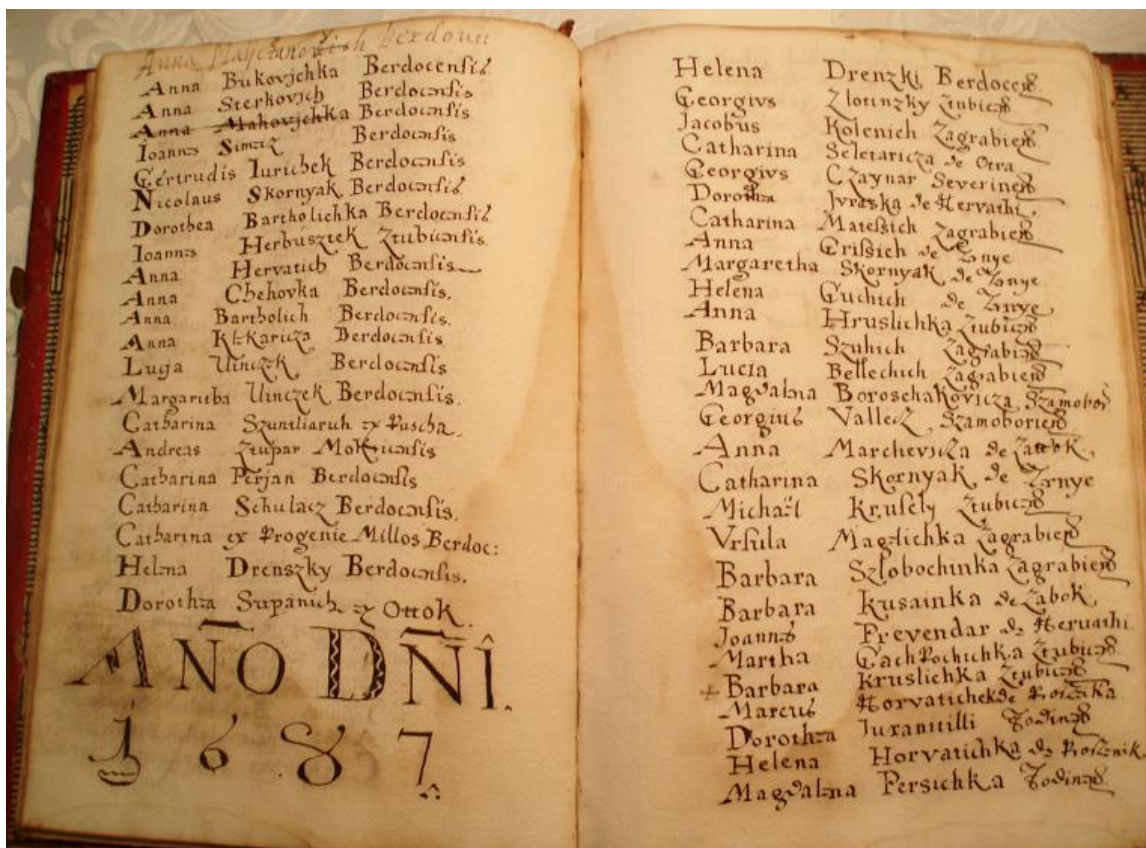 Anna
Anna Bukovjchka Berdocensis
Anna Sterkovjch Berdocensis
Anna Mahovjchka Berdocensis
Ioannes Simecz Berdocensis
Gertrudis Iurichek Berdocensis
Nicolaus Skornyak Berdocensis
Dorothea Bartholichka Berdocensis
Ioannes Herbusztek Ztubicensis
Anna Hervatich Berdocensis
Anna Chehovka Berdocensis.
Anna Bartholich Berdocensis.
Anna Berdocensis
Lucja Uinczek Berdocensis
Margaritha Uinczek Berdocensis.
Catharina ex Puscha.
Andreas Ztupar
Catharina Perjan Berdocensis
Catharina Schulacz Berdocensis.
Catharina ex Progenie Millos Berdoc:
Helena Drenszky Berdocensis.
Dorothea Supanich ex Ottok.
AÑO DÑI.
1687.
Helena Drenzki Berdocens
Georgivs Zlotinzky Ztubicens
Jacobus Kolenich Zagrabiens
Catharina Seletaricza de Otra
Georgivs Czaynar Severinens
Dorothea Jvraska de Hervathi.
Catharina Matessich Zagrabiens
Anna Grissich de Zrnye
Margaretha Skornyak de Zrnye
Helena Guchich de Zrnye
Anna Hruslichka Ztubicens
Barbara Szuhich Zagrabiens
Lucia Bellechich Zagrabiens
Magdalena Boroschakovicza Szamobor
Georgius Vallecz Szamboriens
Anna de
Catharina Skornyak de Zrnye
Michael Krusely Ztubicens
Vrsula Maglichka Zagrabiens
Barbara Szlobochinka Zagrabiens
Barbara Kusainka de Zabok
Joannes Prevendar de Hervathi
Martha Ztubicens
+ Barbara Kruslichka Ztubicens
Marcus Horvatichek de
Dorothea
Helena Horvatichka de
Magdalena Persichka